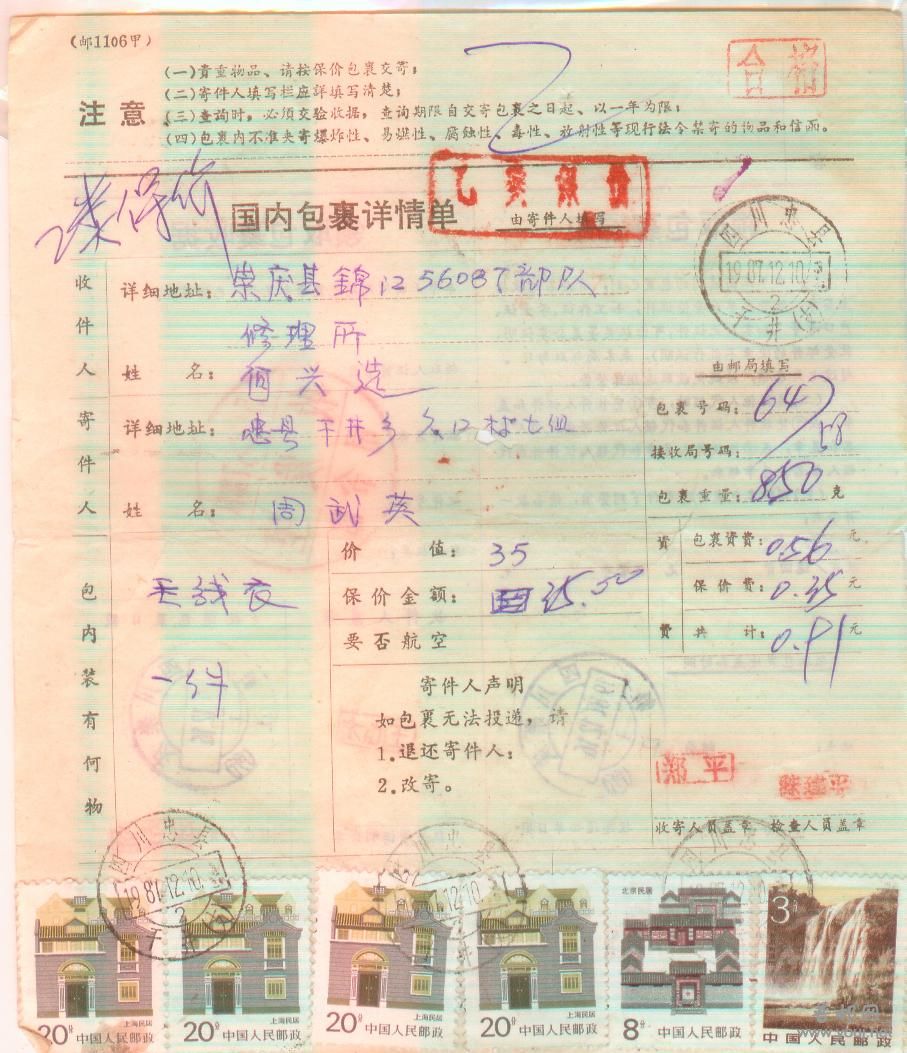 (邮1106甲)
注意
(一)貴重物品、请按保价包裹交寄;
(二)寄件人填写栏应詳填写清楚;
(三)查詢时,必须交验收据,查询期限自交寄包裹之日起、以一年为限;
(四)包裹内不准夹寄爆炸性、易燃性、腐蝕性、毒性、放射性等现行法令禁寄的物品和信函。
国内包裹详情单
由寄件人填写
四川忠县
1987.12.10
收件人
详细地址:崇庆县錦江56087部队
修理所
姓名:何兴造
由邮局填写
寄件人
详细地址:忠县干井乡 村七组
姓名:周武英
包裹号码:647
接收局号码:58
包裹重量:850克
包内装有何物
毛线衣
一件
价值:35
保价金额:35.00
要否航空
资费
包裹资费:0.56元
保价费:0.35元
共计:0.91元
寄件人声明
如包裹无法投递,请
1.退还寄件人;
2.改寄。
郑平
陈建平
收寄人员盖章 检查人员盖章
四川忠县
1987.12.10
20分 上海民居 中国人民邮政
20分 上海民居 中国人民邮政
20分 上海民居 中国人民邮政
20分 上海民居 中国人民邮政
北京民居 8分 中国人民邮政
3分 中国人民邮政